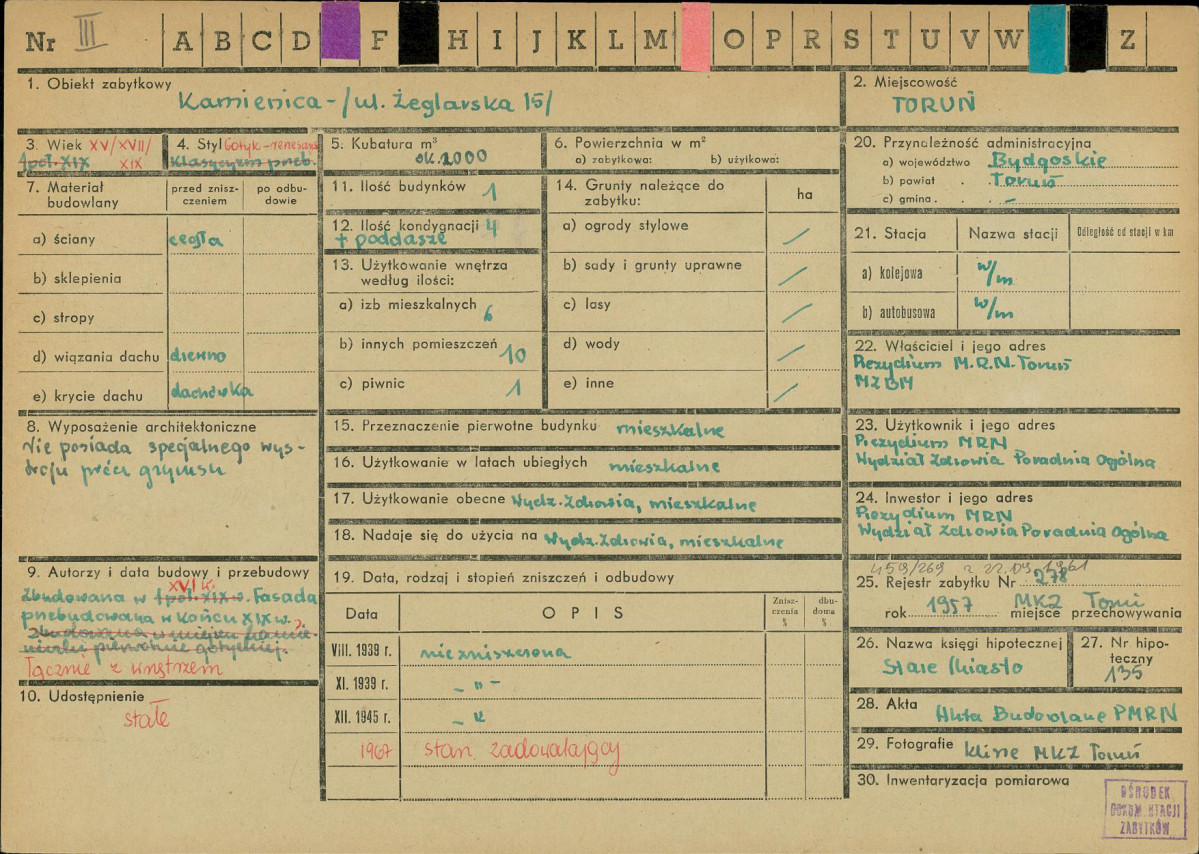 Nr III A B C D F H I J K L M O P R S T U V W Z
1. Obiekt zabytkowy
Kamienica - /ul. Żeglarska 15/
2. Miejscowość
TORUŃ
3. Wiek XV/XVII/
1 poł. XIX XIX
4. Styl Gotyk-renesans
Klasycyzm przeb.
5. Kubatura m³
ok. 2000
6. Powierzchnia w m²
a) zabytkowa: b) użytkowa:
20. Przynależność administracyjna
a) województwo Bydgoskie
b) powiat . . Toruń
c) gmina . . –
7. Materiał budowlany
przed znisz-
czeniem
po odbu-
dowie
a) ściany cegła
b) sklepienia
c) stropy
d) wiązania dachu drewno
e) krycie dachu dachówka
11. Ilość budynków 1
12. Ilość kondygnacji 4
+ poddasze
13. Użytkowanie wnętrza
według ilości:
a) izb mieszkalnych 6
b) innych pomieszczeń 10
c) piwnic 1
14. Grunty należące do
zabytku:
ha
a) ogrody stylowe /
b) sady i grunty uprawne /
c) lasy /
d) wody /
e) inne /
21. Stacja Nazwa stacji Odległość od stacji w km
a) kolejowa w/m
b) autobusowa w/m
22. Właściciel i jego adres
Prezydium M.R.N. Toruń
MZBM
8. Wyposażenie architektoniczne
Nie posiada specjalnego wys-
troju prócz gzymsu
15. Przeznaczenie pierwotne budynku mieszkalne
16. Użytkowanie w latach ubiegłych mieszkalne
17. Użytkowanie obecne Wydz. Zdrowia, mieszkalne
18. Nadaje się do użycia na Wydz. Zdrowia, mieszkalne
23. Użytkownik i jego adres
Prezydium MRN
Wydział Zdrowia Poradnia Ogólna
24. Inwestor i jego adres
Prezydium MRN
Wydział Zdrowia Poradnia Ogólna
9. Autorzy i data budowy i przebudowy
XVI w.
Zbudowana w 1 poł. XIX w. Fasada
przebudowana w końcu XIX w.
Zbudowana w miejscu kamie-
niczki pierwotnie gotyckiej.
Łącznie z wnętrzem
10. Udostępnienie
stałe
19. Data, rodzaj i stopień zniszczeń i odbudowy
Data OPIS
Znisz-
czenia
%
dbu-
doma
%
VIII. 1939 r. niezniszczona
XI. 1939 r. – " –
XII. 1945 r. – "
1967 stan zadowalający
459/269 z 22.09.1961
25. Rejestr zabytku Nr 278
rok 1957 MKZ Toruń
miejsce przechowywania
26. Nazwa księgi hipotecznej
Stare Miasto
27. Nr hipo-
teczny
135
28. Akta
Akta Budowlane PMRN
29. Fotografie klisze MKZ Toruń
30. Inwentaryzacja pomiarowa
OŚRODEK
DOKUMENTACJI
ZABYTKÓW